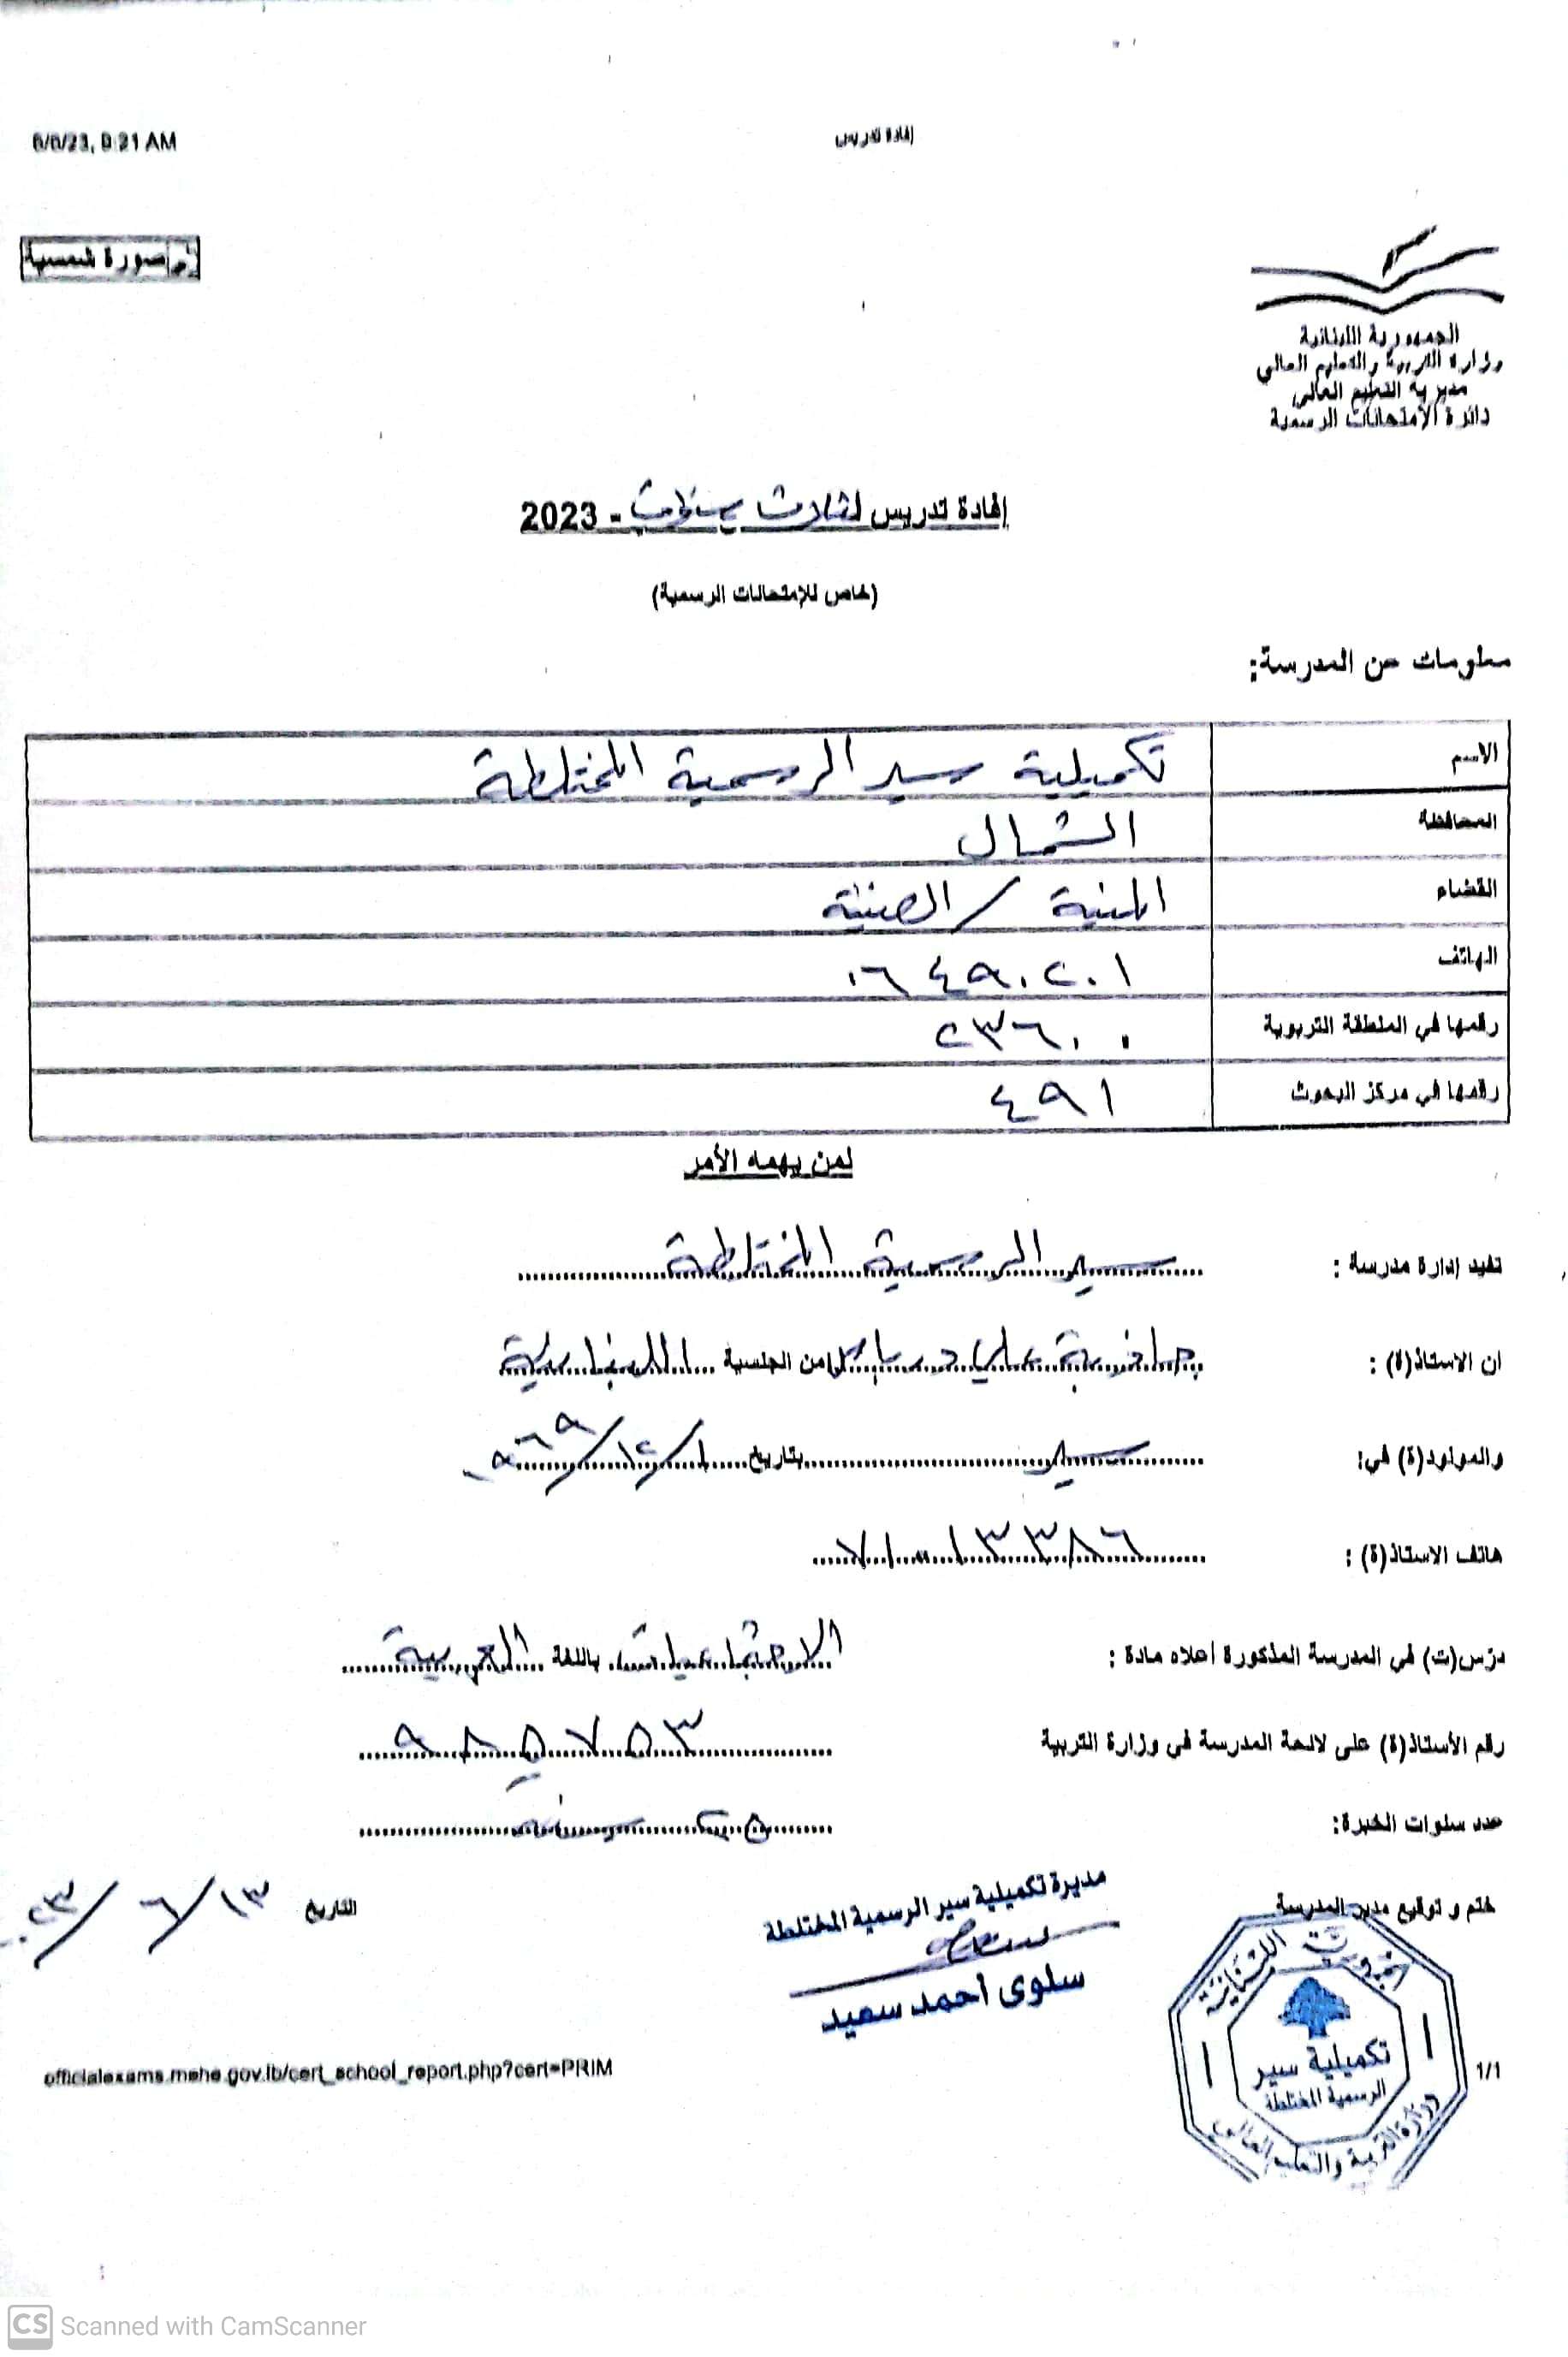 6/6/23, 9:21 AM
إفادة تدريس
صورة شمسية
الجمهورية اللبنانية
وزارة التربية والتعليم العالي
مديرية التعليم العالي
دائرة الامتحانات الرسمية
إفادة تدريس لثلاث سنوات - 2023
(خاص للإمتحانات الرسمية)
معلومات عن المدرسة:
الاسم تكميلية سير الرسمية المختلطة
المحافظة الشمال
القضاء المنية / الضنية
الهاتف ٠٦ ٤٩٠٢٠١
رقمها في المنطقة التربوية ٢٣٦٠٠
رقمها في مركز البحوث ٤٩١
لمن يهمه الأمر
تفيد إدارة مدرسة : سير الرسمية المختلطة
ان الاستاذ(ة) : جاذبية علي درباس من الجنسية اللبنانية
والمولود(ة) في: سير بتاريخ ١/١٢/١٩٦٩
هاتف الاستاذ(ة) : ٧١٠١٣٣٨٦
درّس(ت) في المدرسة المذكورة أعلاه مادة : الاجتماعيات باللغة العربية
رقم الأستاذ(ة) على لائحة المدرسة في وزارة التربية ٩٨٥٧٥٣
عدد سنوات الخبرة: ٢٥ سنة
ختم و توقيع مدير المدرسة
التاريخ ١٣/٦/٢٣
مديرة تكميلية سير الرسمية المختلطة
سلوى احمد سعيد
الجمهورية اللبنانية
تكميلية سير
الرسمية المختلطة
وزارة التربية والتعليم العالي
officialexams.mehe.gov.lb/cert_school_report.php?cert=PRIM
1/1
CS Scanned with CamScanner